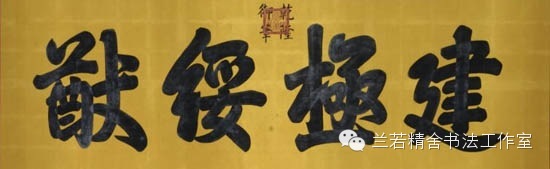 乾隆
御筆
建極綏猷
兰若精舍书法工作室